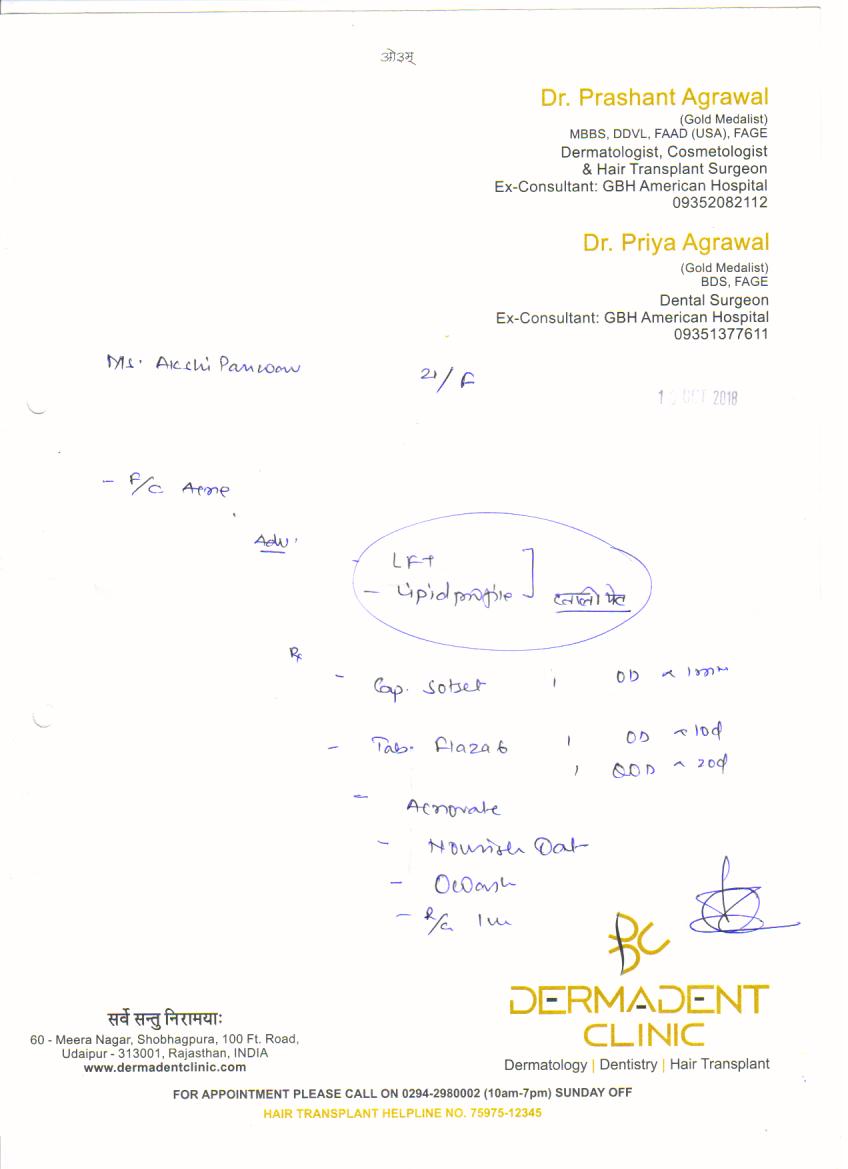 ओउम्
Dr. Prashant Agrawal
(Gold Medalist)
MBBS, DDVL, FAAD (USA), FAGE
Dermatologist, Cosmetologist
& Hair Transplant Surgeon
Ex-Consultant: GBH American Hospital
09352082112
Dr. Priya Agrawal
(Gold Medalist)
BDS, FAGE
Dental Surgeon
Ex-Consultant: GBH American Hospital
09351377611
Ms. Akchi Panwar 21/F
OCT 2018
- F/C Acne
Adv.
- LFT
- Lipid profile ] खाली पेट
Rx
- Cap. Sotret 1 OD x
- Tab. Flaza 6 1 OD x 10d
1 QOD x 20d
- Acnovate
- Nourish Oat
-
- R/C 1m
BC
DERMADENT
CLINIC
Dermatology | Dentistry | Hair Transplant
सर्वे सन्तु निरामयाः
60 - Meera Nagar, Shobhagpura, 100 Ft. Road,
Udaipur - 313001, Rajasthan, INDIA
www.dermadentclinic.com
FOR APPOINTMENT PLEASE CALL ON 0294-2980002 (10am-7pm) SUNDAY OFF
HAIR TRANSPLANT HELPLINE NO. 75975-12345